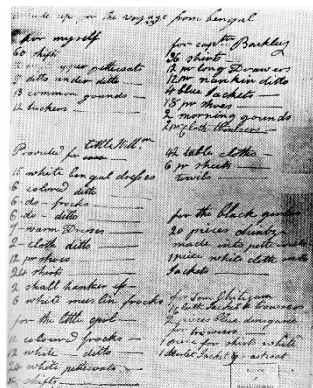 made up for the voyage from bengal
for myself
60 shifts
upper petticoats
8 ditto under ditto
18 common gounds
12 tuckers
Provided for little Will.m
15 white bengal dresses
6 colored ditto
6 - do - frocks
6 - do - ditto
7 - warm Dresses
2 - cloth ditto
12 pr shoes
24 shirts
2 shall hanker
6 white muslin frocks
for the little girl
12 coloured frocks
12 white ditto
24 white petticoats
shifts
for capt.n Barkley
36 shirts
12 pr long Drawers
12 pr nankin ditto
4 blue Jackets
18 pr shoes
2 morning gounds
2 pr cloth
42 table cloths
6 pr sheets
towils
for the black
20 pieces
made into
1 piece white cloth
Jackets
for Tom
cloth Jacket & trowsers
pieces blue
for trowsers
1 piece for shirts white
1 Jacket